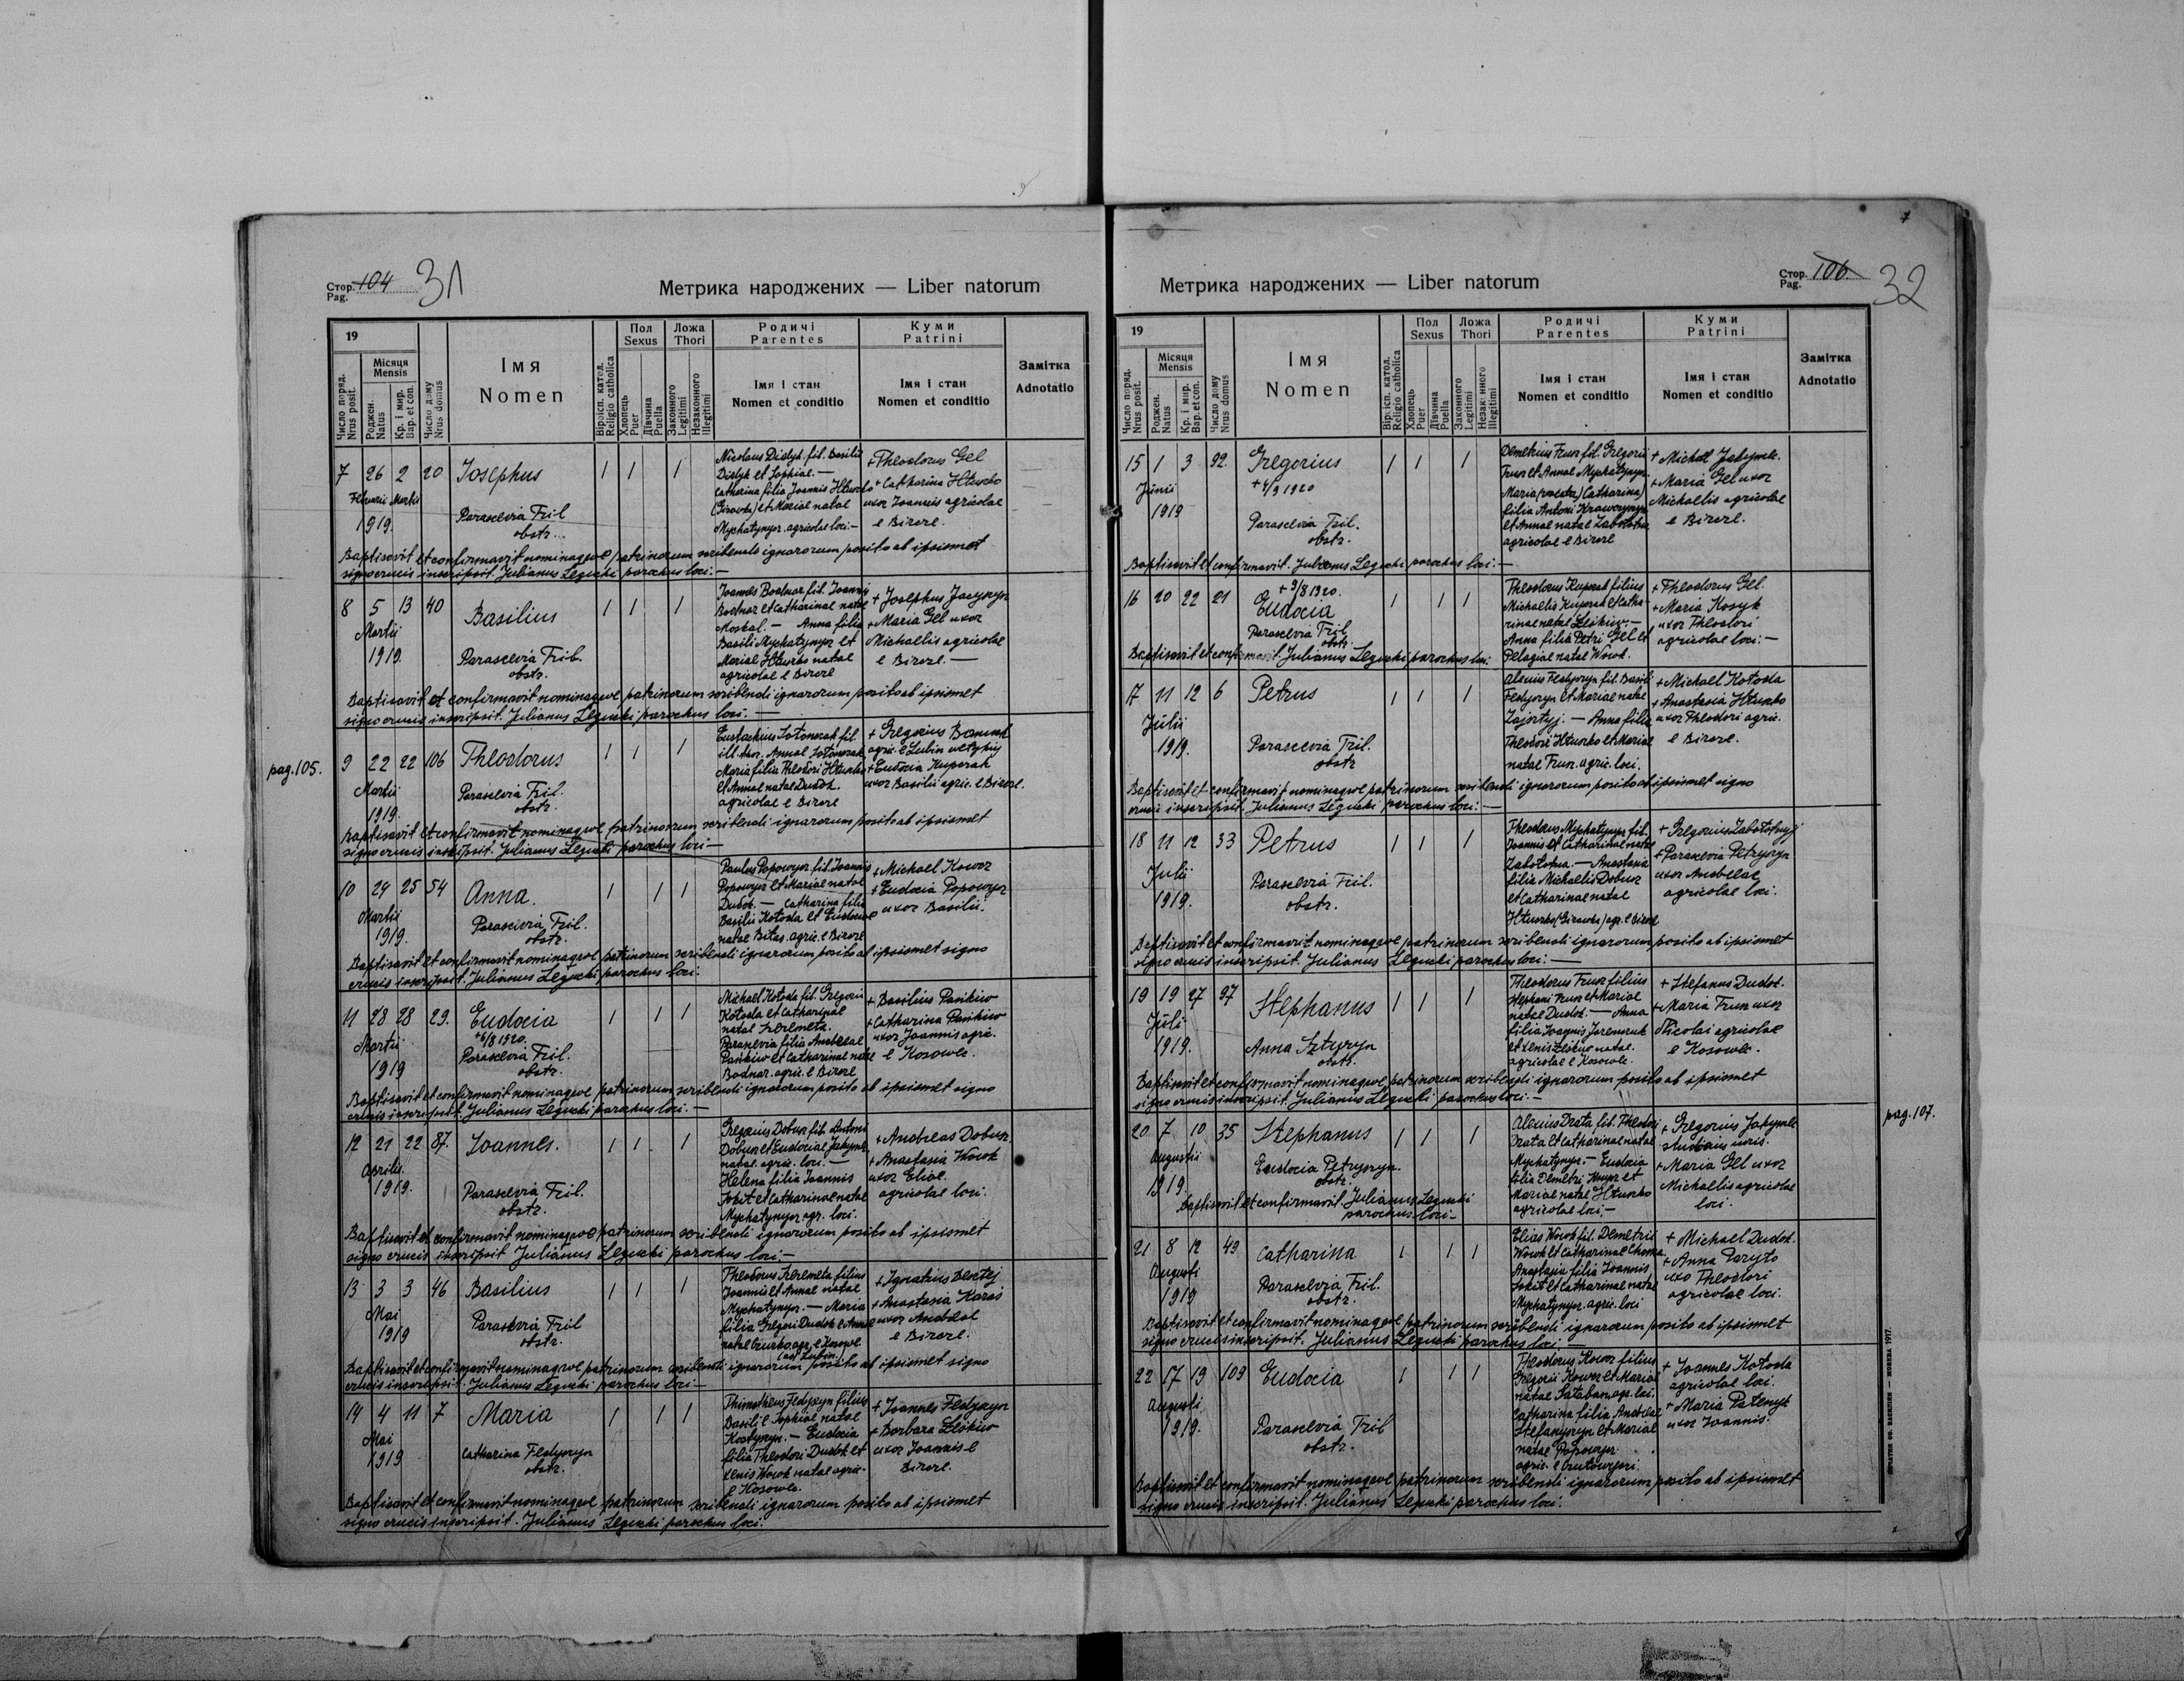 Стор. 104 31
Pag.
Метрика народжених — Liber natorum
19
Число поряд.
Nrus posit.
Місяця
Mensis
Роджен.
Natus
Кр. і мир.
Bap. et con.
Число дому
Nrus domus
Імя
Nomen
Віроісп. катол.
Religio catholica
Пол
Sexus
Хлопець
Puer
Дівчина
Puella
Ложа
Thori
Законного
Legitimi
Незаконного
Illegitimi
Родичі
Parentes
Імя і стан
Nomen et conditio
Куми
Patrini
Імя і стан
Nomen et conditio
Замітка
Adnotatio
7 26 2 20 Josephus 1 1 1
Februarii Martii
1919.
Parascevia Fril
obstr.
Nicolaus Didyk fil. Basilii
Didyk et Sophiae. —
Catharina filia Joannis Hluszko
et Mariae natae
Mychatynycz agricolae loci. —
+ Theodorus Gel
+ Catharina Hluszko
uxor Joannis agricolae
e Bircze.
Baptisavit et confirmavit nominaque patrinorum scribendi ignarorum posito ab ipsismet
signo crucis inscripsit. Julianus Legucki parochus loci. —
8 5 13 40 Basilius 1 1 1
Martii
1919.
Parascevia Fril.
obstr.
Joannes Bodnar fil. Joannis
Bodnar et Catharinae natae
Moskal. — Anna filia
Basilii Mychatynycz et
Mariae Hluszko natae
agricolae e Bircze
+ Josephus Jacyszyn
+ Maria Gel uxor
Michaelis agricolae
e Bircze. —
Baptisavit et confirmavit nominaque patrinorum scribendi ignarorum posito ab ipsismet
signo crucis inscripsit. Julianus Legucki parochus loci. —
pag. 105.
9 22 22 106 Theodorus 1 1 1
Martii
1919.
Parascevia Fril.
obstr.
Maria filia Theodori Hluszko
et Annae natae Dudok.
agricolae e Bircze
+ Gregorius
+ Eudocia Kuperak
uxor Basilii agric. e Bircze.
Baptisavit et confirmavit nominaque patrinorum scribendi ignarorum posito ab ipsismet
signo crucis inscripsit. Julianus Legucki parochus loci —
10 24 25 54 Anna. 1 1 1
Martii
1919.
Parascevia Fril.
obstr.
Paulus Popowycz fil. Joannis
Popowycz et Mariae natae
Dudok. — Catharina filia
Basilii Kołoda et Eudociae
natae Bitas. agric. e Bircze
+ Michael Kowcz
+ Eudocia Popowycz
uxor Basilii.
Baptisavit et confirmavit nominaque patrinorum scribendi ignarorum posito ab ipsismet signo
crucis inscripsit. Julianus Legucki parochus loci.
11 28 28 29. Eudocia 1 1 1
+ 6/8 1920.
Martii
1919
Parascevia Fril.
obstr.
Michael Kołoda fil. Gregorii
Kołoda et Catharinae
natae Szeremeta.
Parascevia filia Andreae
Pańkiw et Catharinae natae
Bodnar. agric. e Bircze
+ Basilius Pańkiw
+ Catharina Pańkiw
uxor Joannis agric.
e Kosowce.
Baptisavit et confirmavit nominaque patrinorum scribendi ignarorum posito ab ipsismet signo
crucis inscripsit. Julianus Legucki parochus loci. —
12 21 22 87. Joannes. 1 1 1
Aprilis.
1919.
Parascevia Fril.
obstr.
Gregorius Dobusz fil. Antoni
Dobusz et Eudociae Jakymec
natae. agric. loci. —
Helena filia Joannis
Sokit et Catharinae natae
Mychatynycz agr. loci.
+ Andreas Dobusz.
+ Anastasia Wowk
uxor Eliae.
agricolae loci.
Baptisavit et confirmavit nominaque patrinorum scribendi ignarorum posito ab ipsismet
signo crucis inscripsit Julianus Legucki parochus loci. —
13 3 3 46 Basilius 1 1 1
Mai
1919
Parascevia Fril
obstr.
Theodorus Szeremeta filius
Joannis et Annae natae
Mychatynycz. — Maria
filia Gregori Dudok e Annae
+ Ignatius
+ Anastasia Karaś
uxor Andreae
e Bircze.
Baptisavit et confirmavit nominaque patrinorum scribendi ignarorum posito ab ipsismet signo
crucis inscripsit. Julianus Legucki parochus loci —
14 4 11 7 Maria 1 1 1
Mai
1919
Catharina Fedyszyn
obstr.
Thimotheus Fedyszyn filius
Basili e Sophiae natae
Kostyszyn. — Eudocia
filia Theodori Dudok et
Xenis Wowk natae agric.
e Kosowce.
+ Joannes Fedyszyn
+ Barbara Leśkiw
uxor Joannis e
Bircze.
Baptisavit et confirmavit nominaque patrinorum scribendi ignarorum posito ab ipsismet
signo crucis inscripsit. Julianus Legucki parochus loci.
7
Метрика народжених — Liber natorum
Стор. 106. 32
Pag.
19
Число поряд.
Nrus posit.
Місяця
Mensis
Роджен.
Natus
Кр. і мир.
Bap. et con.
Число дому
Nrus domus
Імя
Nomen
Віроісп. катол.
Religio catholica
Пол
Sexus
Хлопець
Puer
Дівчина
Puella
Ложа
Thori
Законного
Legitimi
Незаконного
Illegitimi
Родичі
Parentes
Імя і стан
Nomen et conditio
Куми
Patrini
Імя і стан
Nomen et conditio
Замітка
Adnotatio
15 1 3 92. Gregorius 1 1 1
+ 4/9 1920
Junii
1919
Parascevia Fril.
obstr.
Demetrius Frun fil. Gregorii
Frun et Annae Mychatynycz.
Maria Catharina)
filia Antoni Krawczyszyn
et Annae natae Zabołotna
agricolae e Bircze
+ Michael Jakymec.
+ Maria Gel uxor
Michaelis agricolae
e Bircze.
Baptisavit et confirmavit. Julianus Legucki parochus loci. —
16 20 22 21 + 3/8 1920.
Eudocia 1 1 1
Parascevia Fril
obstr.
Theodorus Kuperak filius
Michaelis Kuperak et Catha-
rinae natae Leśkiw. —
Anna filia Petri Gel et
Pelagiae natae Wowk.
+ Theodorus Gel.
+ Maria Kosyk
uxor Theodori
agricolae loci. —
Baptisavit et confirmavit Julianus Legucki parochus loci.
17 11 12 6 Petrus 1 1 1
Julii
1919.
Parascevia Fril.
obstr
Alexius Fedyszyn fil. Basili
Fedyszyn et Mariae natae
— Anna filia
Theodori Hluszko et Mariae
natae Frun. agric. loci.
+ Michael Kołoda
+ Anastasia Hluszko
uxor Theodori agric.
e Bircze.
Baptisavit et confirmavit nominaque patrinorum scribendi ignarorum posito ab ipsismet signo
crucis inscripsit. Julianus Legucki parochus loci: —
18 11 12 33 Petrus 1 1 1
Julii
1919.
Parascevia Fril.
obstr.
Theodorus Mychatynycz fil.
Joannis et Catharinae natae
Zabołotna. — Anastasia
filia Michaelis Dobusz
et Catharinae natae
+ Gregorius Zabołotnyj
+ Parascevia Petryszyn
uxor Andreae
agricolae loci.
Baptisavit et confirmavit nominaque patrinorum scribendi ignarorum posito ab ipsismet
signo crucis inscripsit. Julianus Legucki parochus loci. —
19 19 27 97 Stephanus 1 1 1
Juli
1919.
Anna Sztyzyn
obstr.
Theodorus Frun filius
Stephani Frun et Mariae
natae Dudok. — Anna
filia Joannis Jaremczuk
et Xenis Leśkiw natae.
agricolae e Kosowce.
+ Stefanus Dudok.
+ Maria Frun uxor
Nicolai agricolae
e Kosowce.
Baptisavit et confirmavit nominaque patrinorum scribendi ignarorum posito ab ipsismet
signo crucis inscripsit. Julianus Legucki parochus loci. —
pag. 107.
20 7 10 35 Stephanus 1 1 1
Augustii
1919.
Eudocia Petryszyn.
obstr.
Alexius Drata fil. Theodori
Drata et Catharinae natae
Mychatynycz. — Eudocia
filia Demetri et
Mariae natae Hluszko
agricolae loci. —
+ Gregorius Jakymec
studiosus iuris.
+ Maria Gel uxor
Michaelis agricolae
loci.
Baptisavit et confirmavit. Julianus Legucki
parochus loci —
21 8 12 49 Catharina 1 1 1
Augusti
1919
Parascevia Fril.
obstr.
Elias Wowk fil. Demetrii
Wowk et Catharinae Choma
Anastasia filia Joannis
Sokit et Catharinae natae
Mychatynycz. agric. loci
+ Michael Dudok.
+ Anna
uxo Theodori
agricolae loci.
Baptisavit et confirmavit nominaque patrinorum scribendi ignarorum posito ab ipsismet
signo crucis inscripsit. Julianus Legucki parochus loci. —
22 17 19 109 Eudocia 1 1 1
Augusti
1919.
Parascevia Fril
obstr.
Theodorus Kowcz filius
Gregorii Kowcz et Mariae
natae Sataban agr. loci.
Catharina filia Andreae
Stefanyszyn et Mariae
natae Popowycz.
+ Joannes Kołoda
agricolae loci.
+ Maria
uxor Joannis.
Baptisavit et confirmavit nominaque patrinorum scribendi ignarorum posito ab ipsismet
signo crucis inscripsit. Julianus Legucki parochus loci.